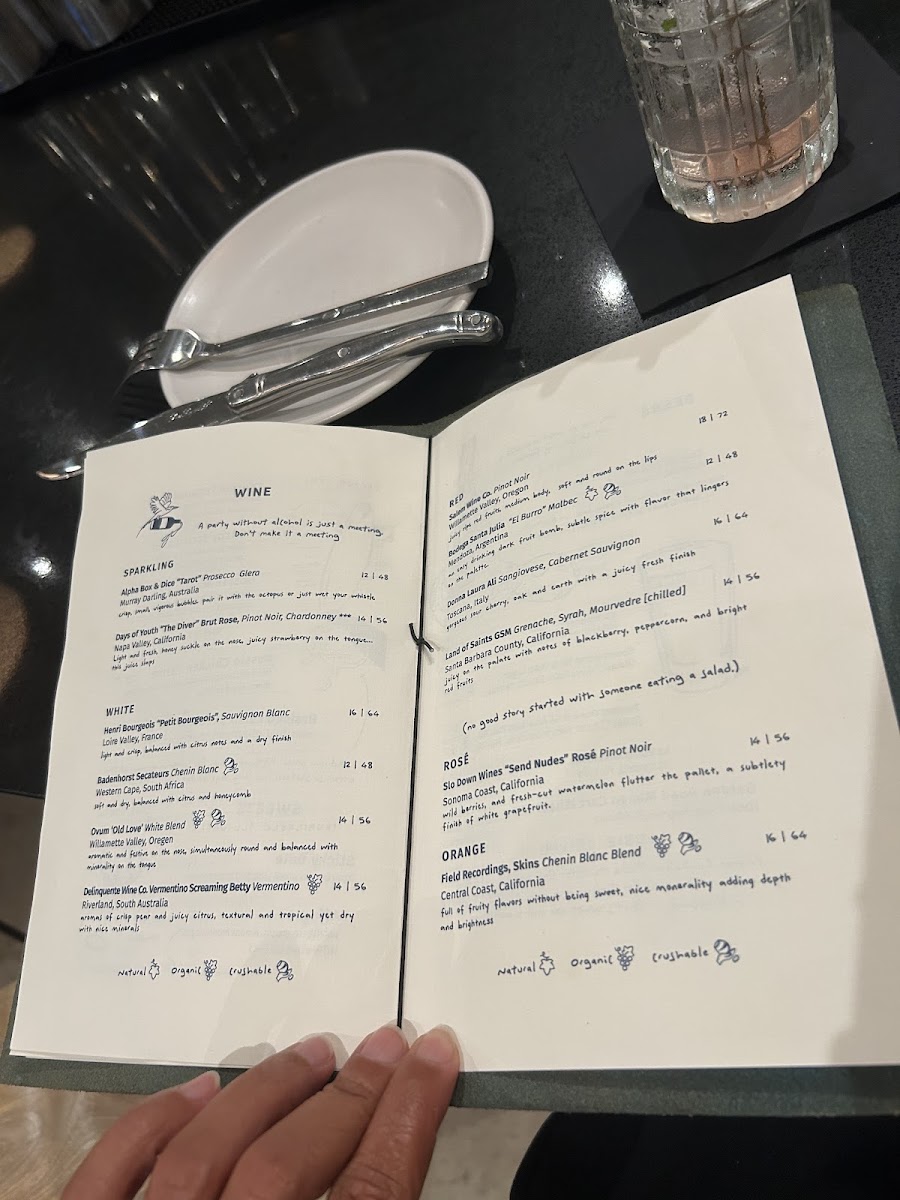 WINE
A party without alcohol is just a meeting.
Don't make it a meeting
SPARKLING
Alpha Box & Dice "Tarot" Prosecco Glera 12 | 48
Murray Darling, Australia
crisp, small, vigorous bubbles. pair it with the octopus or just wet your whistle
Days of Youth "The Diver" Brut Rose, Pinot Noir, Chardonnay *** 14 | 56
Napa Valley, California
Light and fresh, honey suckle on the nose, juicy strawberry on the tongue...
this juice slaps
WHITE
Henri Bourgeois "Petit Bourgeois", Sauvignon Blanc 16 | 64
Loire Valley, France
light and crisp, balanced with citrus notes and a dry finish
Badenhorst Secateurs Chenin Blanc 12 | 48
Western Cape, South Africa
soft and dry, balanced with citrus and honeycomb
Ovum 'Old Love' White Blend 14 | 56
Willamette Valley, Oregen
aromatic and festive on the nose, simultaneously round and balanced with
minerality on the tongue
Delinquente Wine Co. Vermentino Screaming Betty Vermentino 14 | 56
Riverland, South Australia
aromas of crisp pear and juicy citrus, textural and tropical yet dry
with nice minerals
Natural Organic Crushable
RED
Salem Wine Co. Pinot Noir 18 | 72
Willamette Valley, Oregon
juicy ripe red fruits, medium body, soft and round on the lips
Bodega Santa Julia "El Burro" Malbec 12 | 48
Mendoza, Argentina
an easy drinking dark fruit bomb, subtle spice with flavor that lingers
on the palette.
Donna Laura Ali Sangiovese, Cabernet Sauvignon 16 | 64
Toscana, Italy
gorgeous sour cherry, oak and earth with a juicy fresh finish
Land of Saints GSM Grenache, Syrah, Mourvedre [chilled] 14 | 56
Santa Barbara County, California
juicy on the palate with notes of blackberry, peppercorn, and bright
red fruits
(no good story started with someone eating a salad.)
ROSÉ
Slo Down Wines "Send Nudes" Rosé Pinot Noir 14 | 56
Sonoma Coast, California
wild berries, and fresh-cut watermelon flutter the pallet, a subtlety
finish of white grapefruit.
ORANGE
Field Recordings, Skins Chenin Blanc Blend 16 | 64
Central Coast, California
full of fruity flavors without being sweet, nice monerality adding depth
and brightness
Natural Organic Crushable